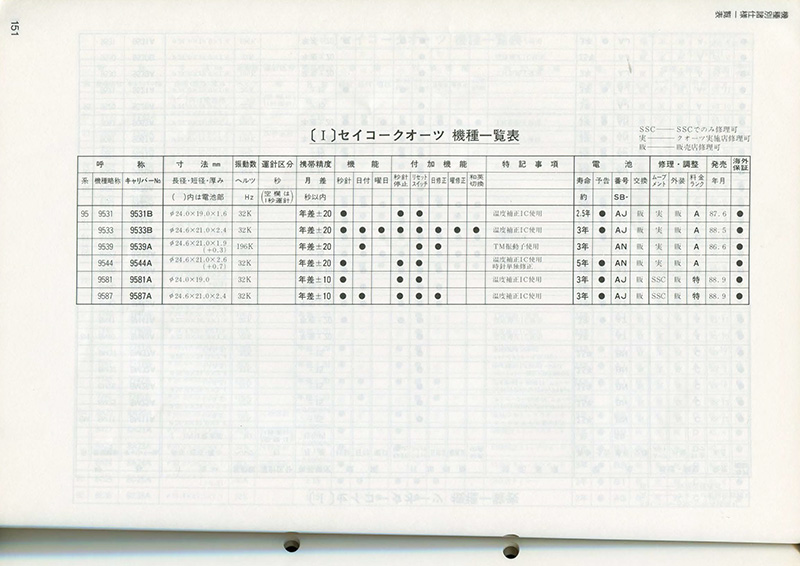 151
機種別諸仕様一覧表
〔I〕セイコークオーツ 機種一覧表
SSC―― SSCでのみ修理可
実―― クオーツ実施店修理可
販―― 販売店修理可
呼 称 寸 法 mm 振動数 運針区分 携帯精度 機 能 付 加 機 能 特 記 事 項 電 池 修理・調整 発売 海外保証
系 機種略称 キャリバーNo 長径・短径・厚み ヘルツ 秒 月 差 秒針 日付 曜日 秒針停止 リセットスイッチ 日修正 曜修正 和英切換 寿命 予告 番号 交換 ムーブメント 外装 料金ランク 年月
( )内は電池部 Hz (空欄は1秒運針) 秒以内 約 SB-
95 9531 9531B φ24.0×19.0×1.6 32K 年差±20 ● ● ● 温度補正IC使用 2.5年 ● AJ 販 実 販 A 87.6 ●
9533 9533B φ24.6×21.0×2.4 32K 年差±20 ● ● ● ● ● ● ● ● 温度補正IC使用 3年 ● AJ 販 実 販 A 88.9 ●
9539 9539A φ24.6×21.0×1.9 (+0.3) 196K 年差±20 ● ● ● TM振動子使用 3年 AN 販 実 販 A 86.6 ●
9544 9544A φ24.6×21.0×2.6 (+0.7) 32K 年差±20 ● ● ● 温度補正IC使用 時針単独修正 5年 ● AN 販 実 販 A ●
9581 9581A φ24.0×19.0 32K 年差±10 ● ● ● 温度補正IC使用 3年 ● AJ 販 SSC 販 特 88.5 ●
9587 9587A φ24.6×21.0×2.4 32K 年差±10 ● ● ● ● ● 温度補正IC使用 3年 ● AJ 販 SSC 販 特 88.9 ●